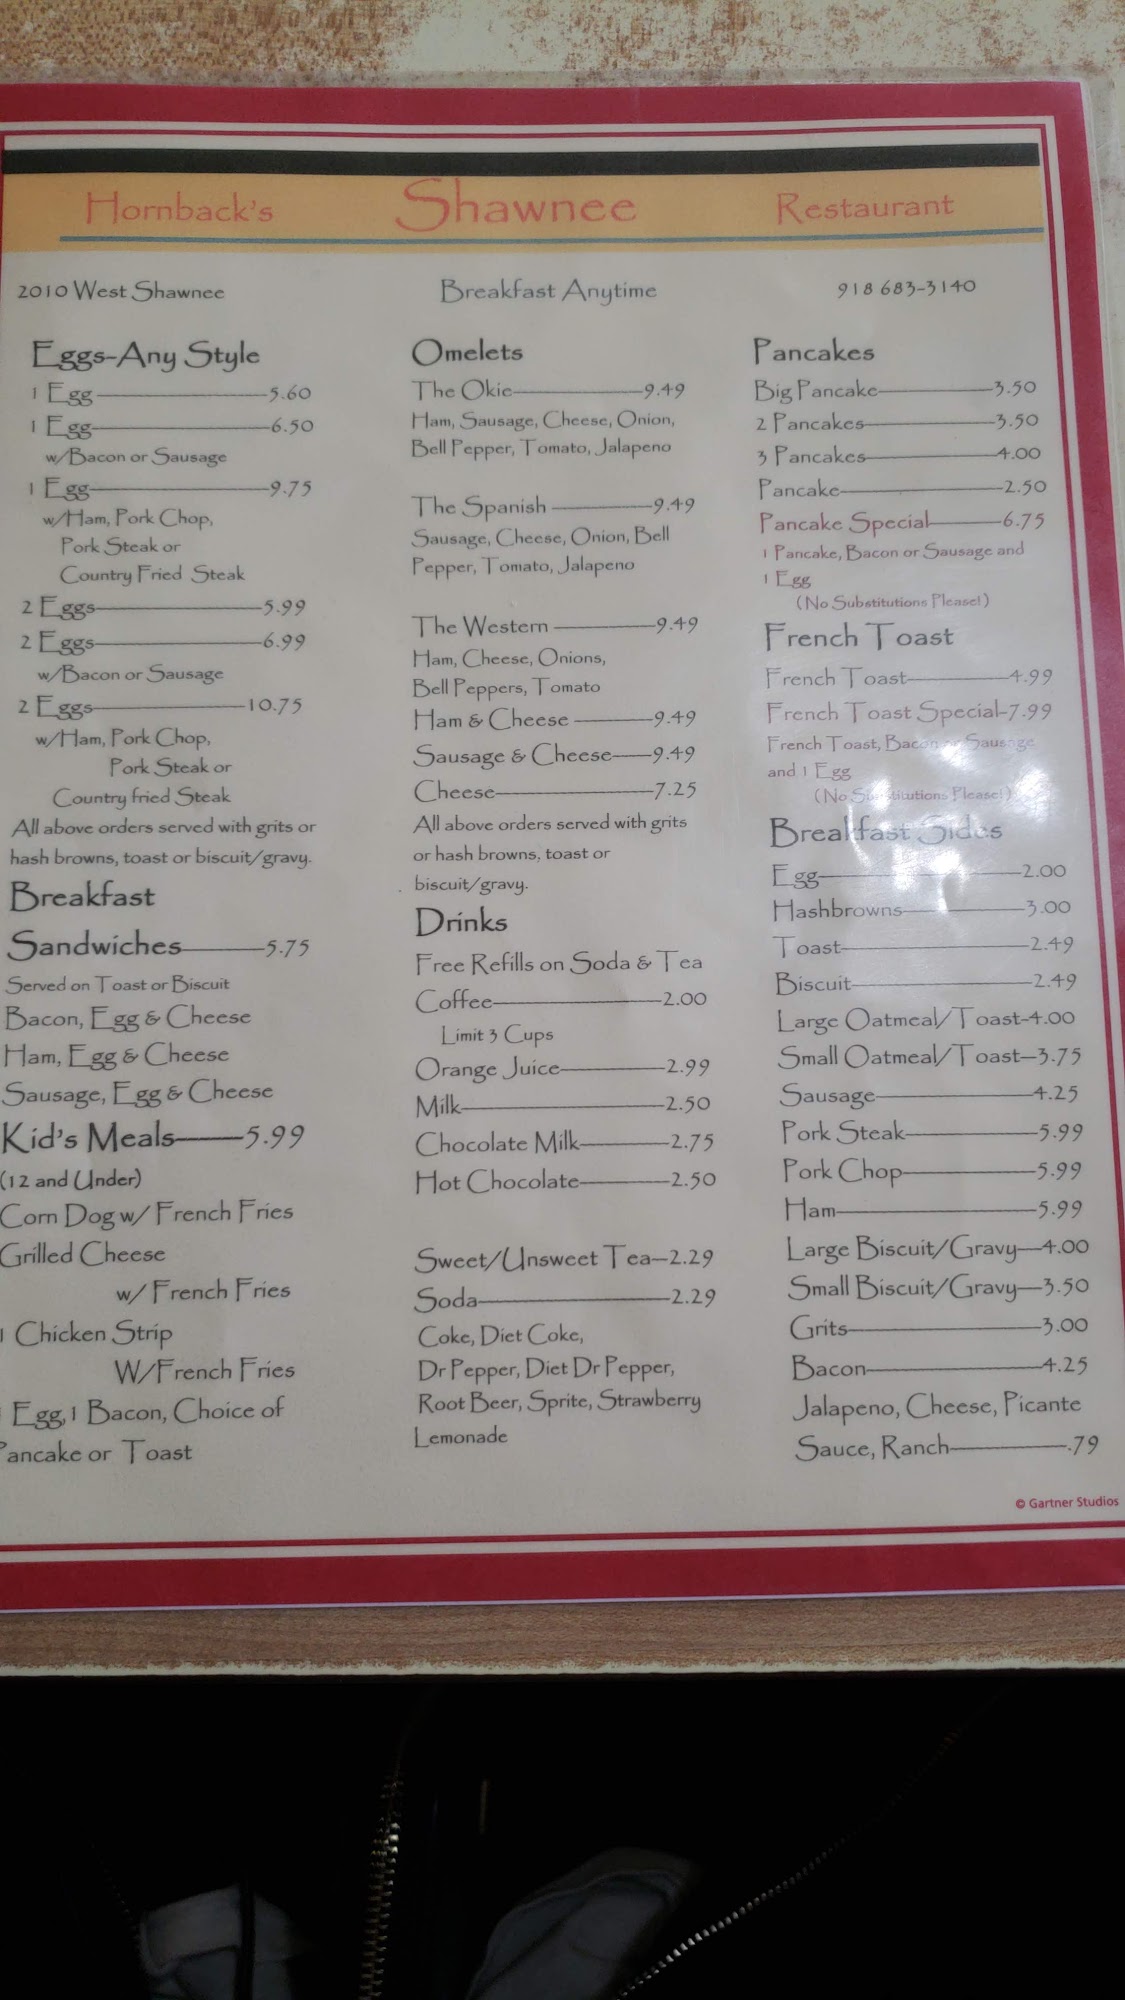 Hornback's Shawnee Restaurant
2010 West Shawnee
Breakfast Anytime
918 683-3140
Eggs-Any Style
1 Egg 5.60
1 Egg 6.50
w/Bacon or Sausage
1 Egg 9.75
w/Ham, Pork Chop,
Pork Steak or
Country Fried Steak
2 Eggs 5.99
2 Eggs 6.99
w/Bacon or Sausage
2 Eggs 10.75
w/Ham, Pork Chop,
Pork Steak or
Country fried Steak
All above orders served with grits or
hash browns, toast or biscuit/gravy.
Breakfast
Sandwiches 5.75
Served on Toast or Biscuit
Bacon, Egg & Cheese
Ham, Egg & Cheese
Sausage, Egg & Cheese
Kid's Meals 5.99
(12 and Under)
Corn Dog w/ French Fries
Grilled Cheese
w/ French Fries
1 Chicken Strip
W/French Fries
1 Egg, 1 Bacon, Choice of
Pancake or Toast
Omelets
The Okie 9.49
Ham, Sausage, Cheese, Onion,
Bell Pepper, Tomato, Jalapeno
The Spanish 9.49
Sausage, Cheese, Onion, Bell
Pepper, Tomato, Jalapeno
The Western 9.49
Ham, Cheese, Onions,
Bell Peppers, Tomato
Ham & Cheese 9.49
Sausage & Cheese 9.49
Cheese 7.25
All above orders served with grits
or hash browns, toast or
biscuit/gravy.
Drinks
Free Refills on Soda & Tea
Coffee 2.00
Limit 3 Cups
Orange Juice 2.99
Milk 2.50
Chocolate Milk 2.75
Hot Chocolate 2.50
Sweet/Unsweet Tea 2.29
Soda 2.29
Coke, Diet Coke,
Dr Pepper, Diet Dr Pepper,
Root Beer, Sprite, Strawberry
Lemonade
Pancakes
Big Pancake 3.50
2 Pancakes 3.50
3 Pancakes 4.00
Pancake 2.50
Pancake Special 6.75
1 Pancake, Bacon or Sausage and
1 Egg
(No Substitutions Please!)
French Toast
French Toast 4.99
French Toast Special-7.99
French Toast, Bacon or Sausage
and 1 Egg
(No Substitutions Please!)
Breakfast Sides
Egg 2.00
Hashbrowns 3.00
Toast 2.49
Biscuit 2.49
Large Oatmeal/Toast-4.00
Small Oatmeal/Toast-3.75
Sausage 4.25
Pork Steak 5.99
Pork Chop 5.99
Ham 5.99
Large Biscuit/Gravy 4.00
Small Biscuit/Gravy 3.50
Grits 3.00
Bacon 4.25
Jalapeno, Cheese, Picante
Sauce, Ranch .79
© Gartner Studios